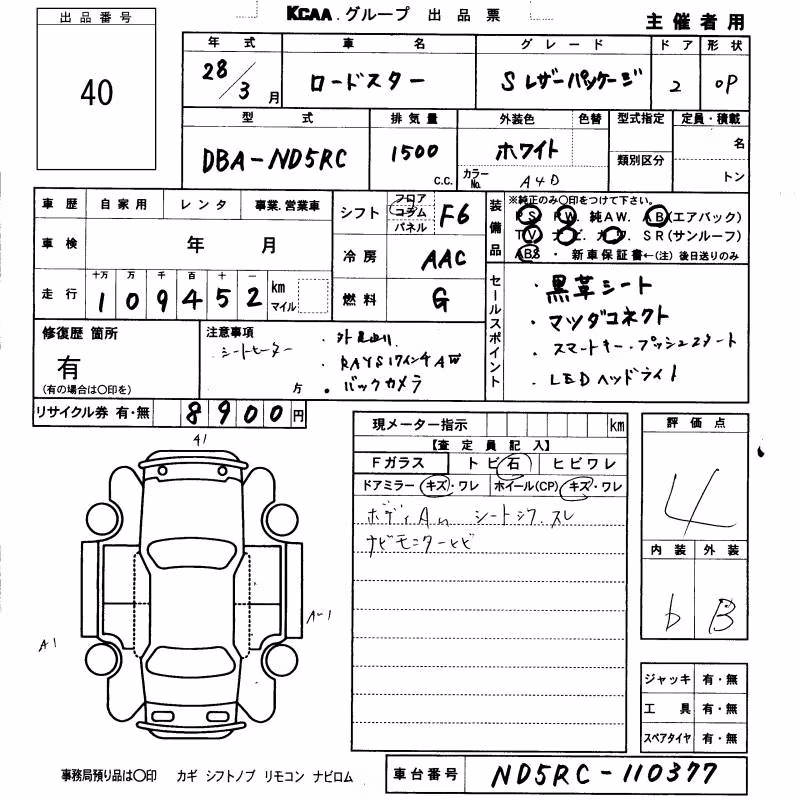 KCAA.グループ 出品票
主催者用
出品番号
40
年式 車名 グレード ドア 形状
28/3月 ロードスター Sレザーパッケージ 2 OP
型式 排気量 外装色 色替 型式指定 定員・積載
DBA-ND5RC 1500 C.C. ホワイト 類別区分 名
カラーNo. A4D トン
車歴 自家用 レンタ 事業.営業車
シフト フロア コラム パネル F6
装備品 ※純正のみ〇印をつけて下さい。
PS PW. 純AW. AB(エアバック)
TV ナビ. カワ. SR(サンルーフ)
ABS・新車保証書←(注)後日送りのみ
車検 年 月
冷房 AAC
走行 十万 万 千 百 十 一
109452 km マイル
燃料 G
セールスポイント
・黒革シート
・マツダコネクト
・スマートキー・プッシュスタート
・LEDヘッドライト
修復歴 箇所
有
(有の場合は〇印を)
注意事項
シートヒーター
・RAYS17インチAW
方 ・バックカメラ
リサイクル券 有・無 8900円
現メーター指示 km
【査定員記入】
Fガラス トビ石 ヒビワレ
ドアミラー キズ・ワレ ホイール(CP) キズ・ワレ
ボディA シートシワ.スレ
ナビモニターヒビ
評価点
4
内装 外装
b B
41
A-1
A1
ジャッキ 有・無
工具 有・無
スペアタイヤ 有・無
事務局預り品は〇印 カギ シフトノブ リモコン ナビロム
車台番号 ND5RC-110377